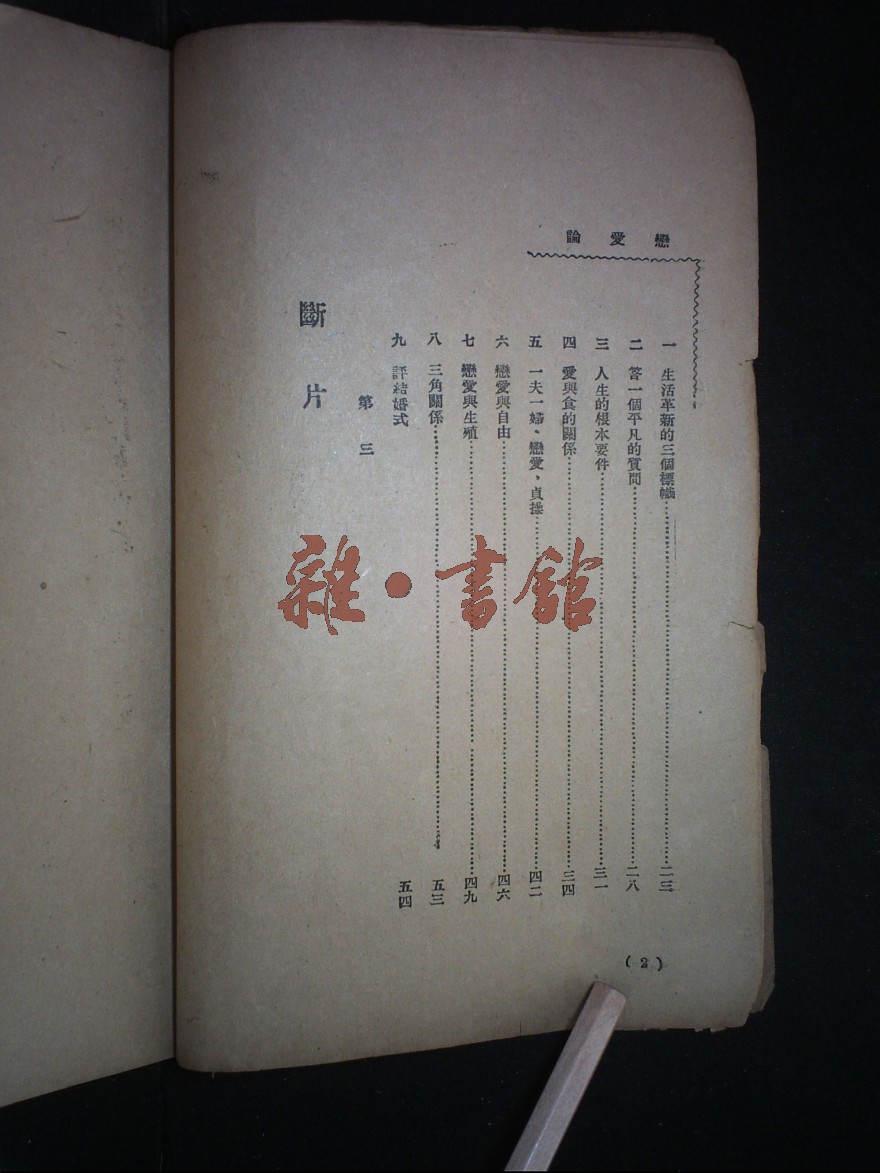 戀愛論
一 生活革新的三個標幟……二三
二 答一個平凡的質問……二八
三 人生的根本要件……三一
四 愛與食的關係……三四
五 一夫一婦、戀愛、貞操……四二
六 戀愛與自由……四六
七 戀愛與生殖……四九
八 三角關係……五三
九 評結婚式 五四
第三
斷片
(2)
雜·書館